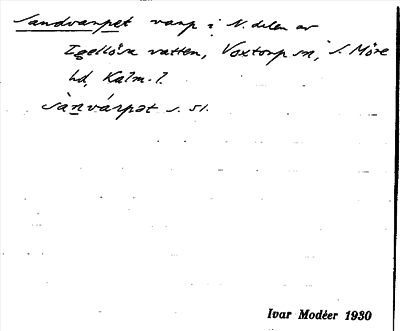 Sandvarpet varp i N. delen av
Egellösa vatten, Voxtorp sn, S. Möre
hd, Kalm. l.
sànvárpət s. 51.
Ivar Modéer 1930